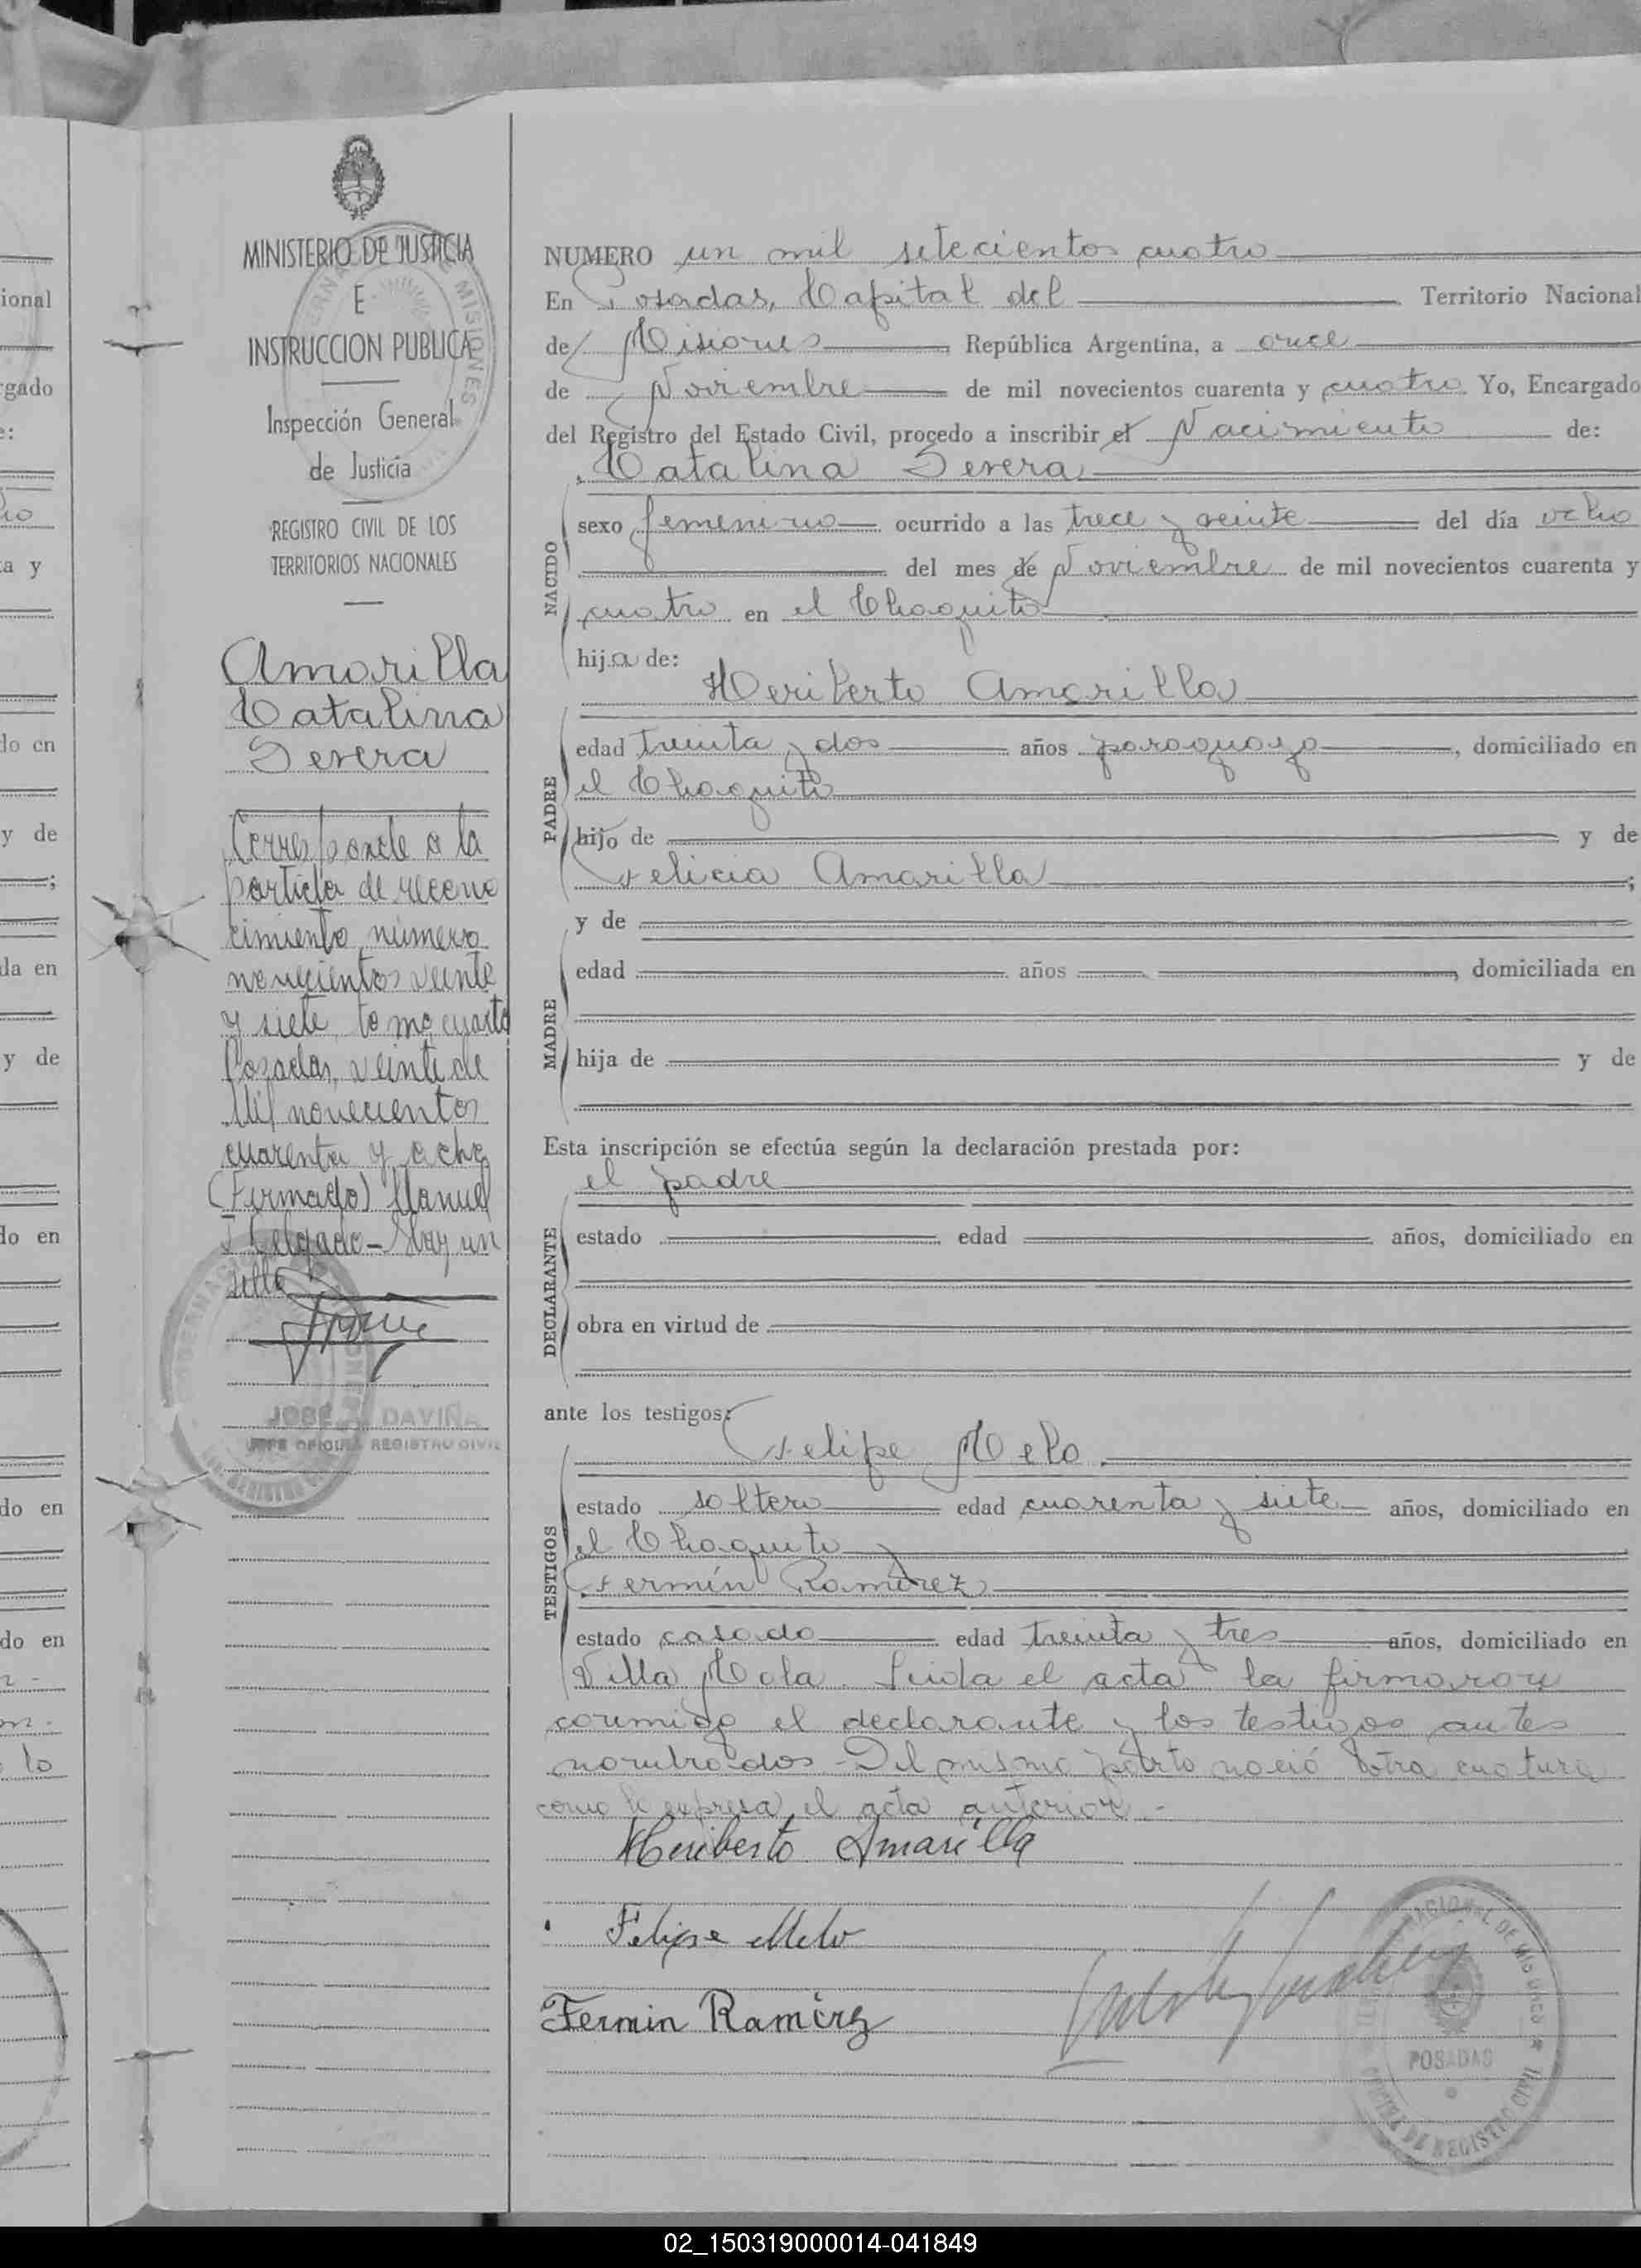 MINISTERIO DE JUSTICIA
E
INSTRUCCION PUBLICA
Inspección General
de Justicia
REGISTRO CIVIL DE LOS
TERRITORIOS NACIONALES
Amarilla
Catalina
Severa
Corresponde a la
partida de recono
cimiento número
novecientos veinte
y siete tomo cuarto
Posadas, veinte de
Mil novecientos
cuarenta y ocho
(Firmado) Manuel
Delgado - Hay un
sello
JOSÉ DAVIÑA
JEFE OFICINA REGISTRO CIVIL
NUMERO un mil setecientos cuatro
En Posadas, Capital del Territorio Nacional
de Misiones República Argentina, a once
de Noviembre de mil novecientos cuarenta y cuatro Yo, Encargado
del Registro del Estado Civil, procedo a inscribir el Nacimiento de:
Catalina Severa
NACIDO
sexo femenino ocurrido a las trece y veinte del día ocho
del mes de Noviembre de mil novecientos cuarenta y
cuatro en el Chaquito
hija de:
Heriberto Amarilla
PADRE
edad treinta y dos años paraguayo, domiciliado en
el Chaquito
hijo de y de
Felicia Amarilla;
y de
MADRE
edad años , domiciliada en
hija de y de
Esta inscripción se efectúa según la declaración prestada por:
el padre
DECLARANTE
estado edad años, domiciliado en
obra en virtud de
ante los testigos:
Felipe Melo
TESTIGOS
estado soltero edad cuarenta y siete años, domiciliado en
el Chaquito y
Fermín Ramirez
estado casado edad treinta y tres años, domiciliado en
Villa Mola. Leida el acta la firmaron
conmigo el declarante y los testigos antes
nombrados - Del mismo parto nació otra criatura
como lo expresa el acta anterior. -
Heriberto Amarilla
Felipe Melo
Fermin Ramirez
POSADAS
02_150319000014-041849